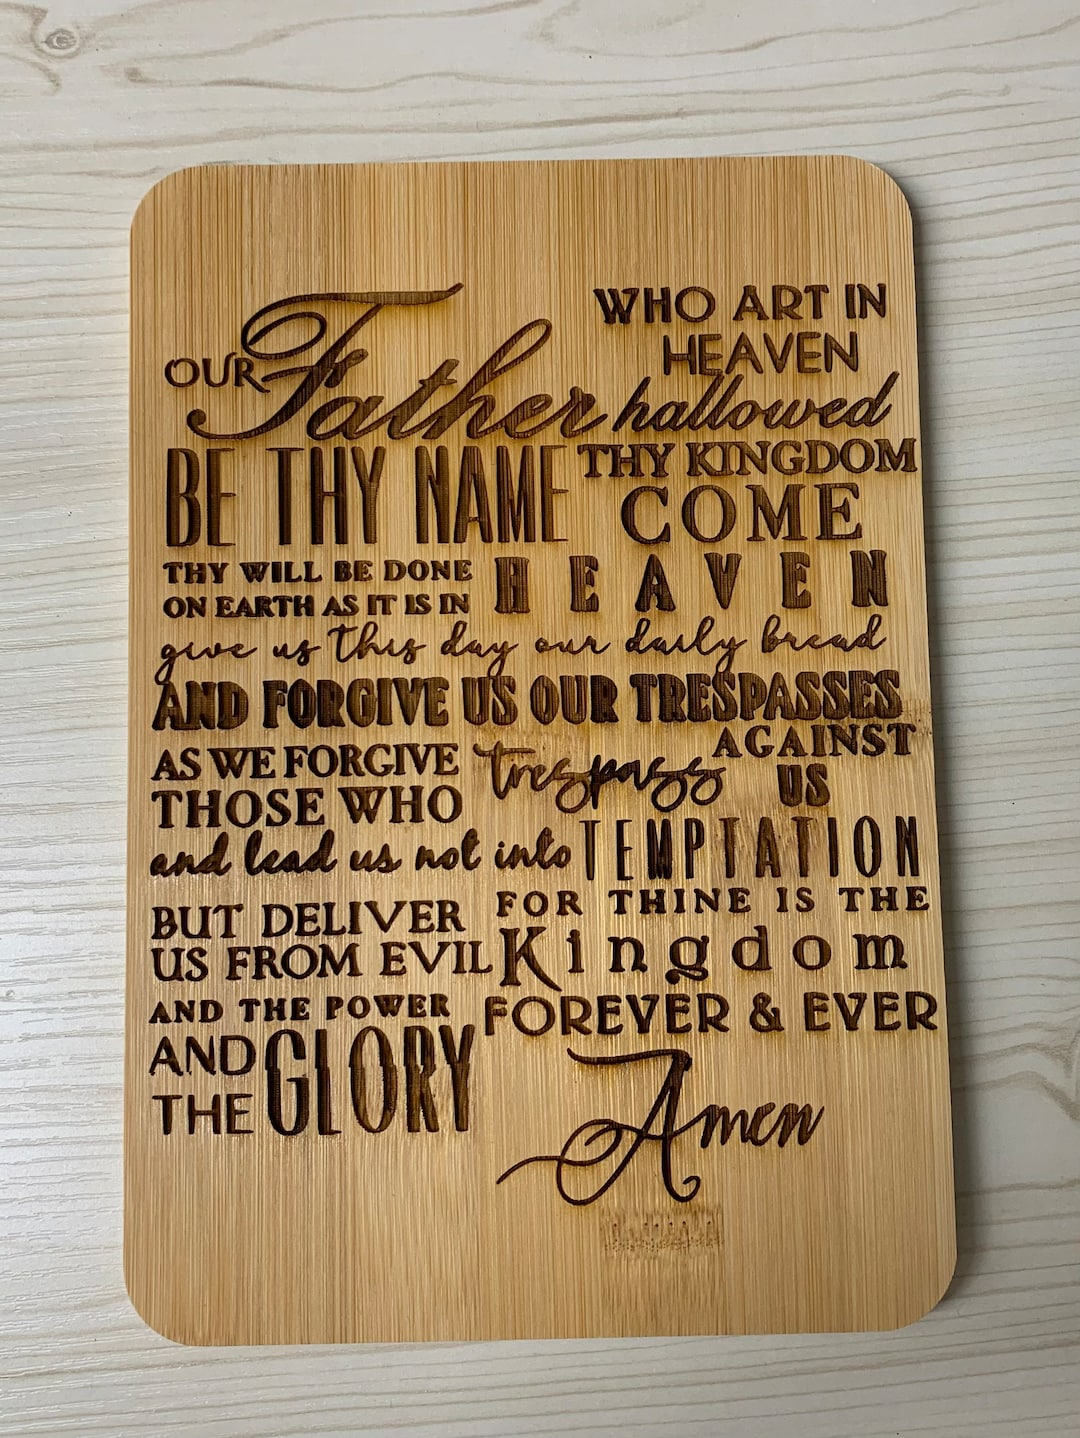 OUR Father WHO ART IN
HEAVEN
hallowed
BE THY NAME THY KINGDOM
COME
THY WILL BE DONE
ON EARTH AS IT IS IN HEAVEN
give us this day our daily bread
AND FORGIVE US OUR TRESPASSES
AS WE FORGIVE
THOSE WHO trespass AGAINST
US
and lead us not into TEMPTATION
BUT DELIVER
US FROM EVIL
FOR THINE IS THE
Kingdom
AND THE POWER
AND
THE GLORY
FOREVER & EVER
Amen